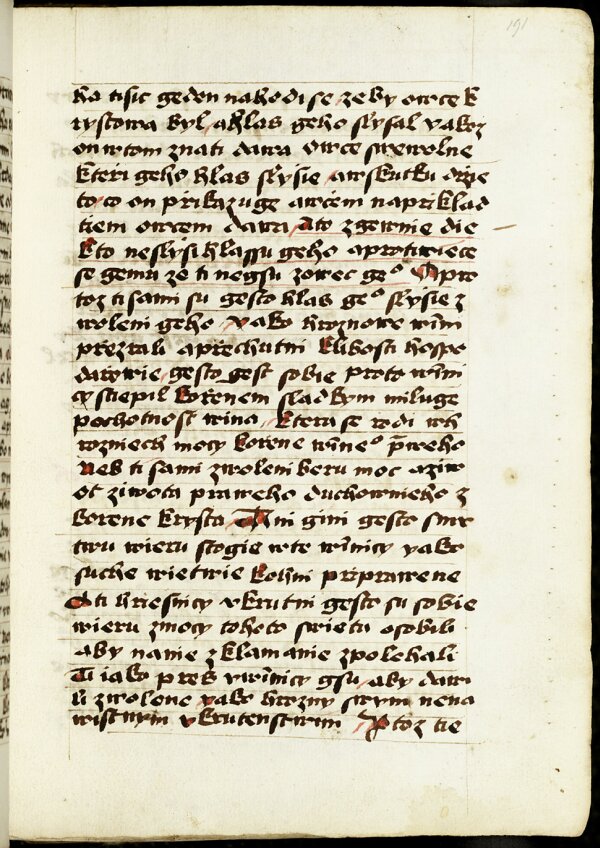 191
ha tisic geden nahodi se ze by owce k
rystowa byl a hlas geho slysal yakoz
on w tom znati dawa owce swe wolne
kteri geho hlas slysie a w skutku drzie
to co on prikazuge a wciem napriklad
tiem owcem dawa A to zgewnie die
kto neslysi hlassu geho a protiwiece
se gemu ze ti negsu z owec geº A pro
toz ti sami su gesto hlas geº slysie z
woleni geho yako hroznowe winni
przezrali a przechutni k libosti hospo
darowie gesto gest sobie proto winni
cy sctiepil korzenem sladkym miluge
pochotnost wina ktera se rodi w h
rozniech mocy korene winneº praweho
Neb ti sami zwoleni beru moc a ziw
ot ziwota praweho duchownieho z
korene krysta A gini gesto smr
twu wieru stogie w te winnicy yako
suche wietwie k ohni priprawene
A ti hriesnicy vkrutni gesto su sobie
wieru z mocy tohoto swieta osobili
aby na nie zklamanie zpolehali
Ti iako pres winnicy gsu aby dawi
li zwolene yako hrozny swym nena
wistnym vkrutenstwim A toz tie